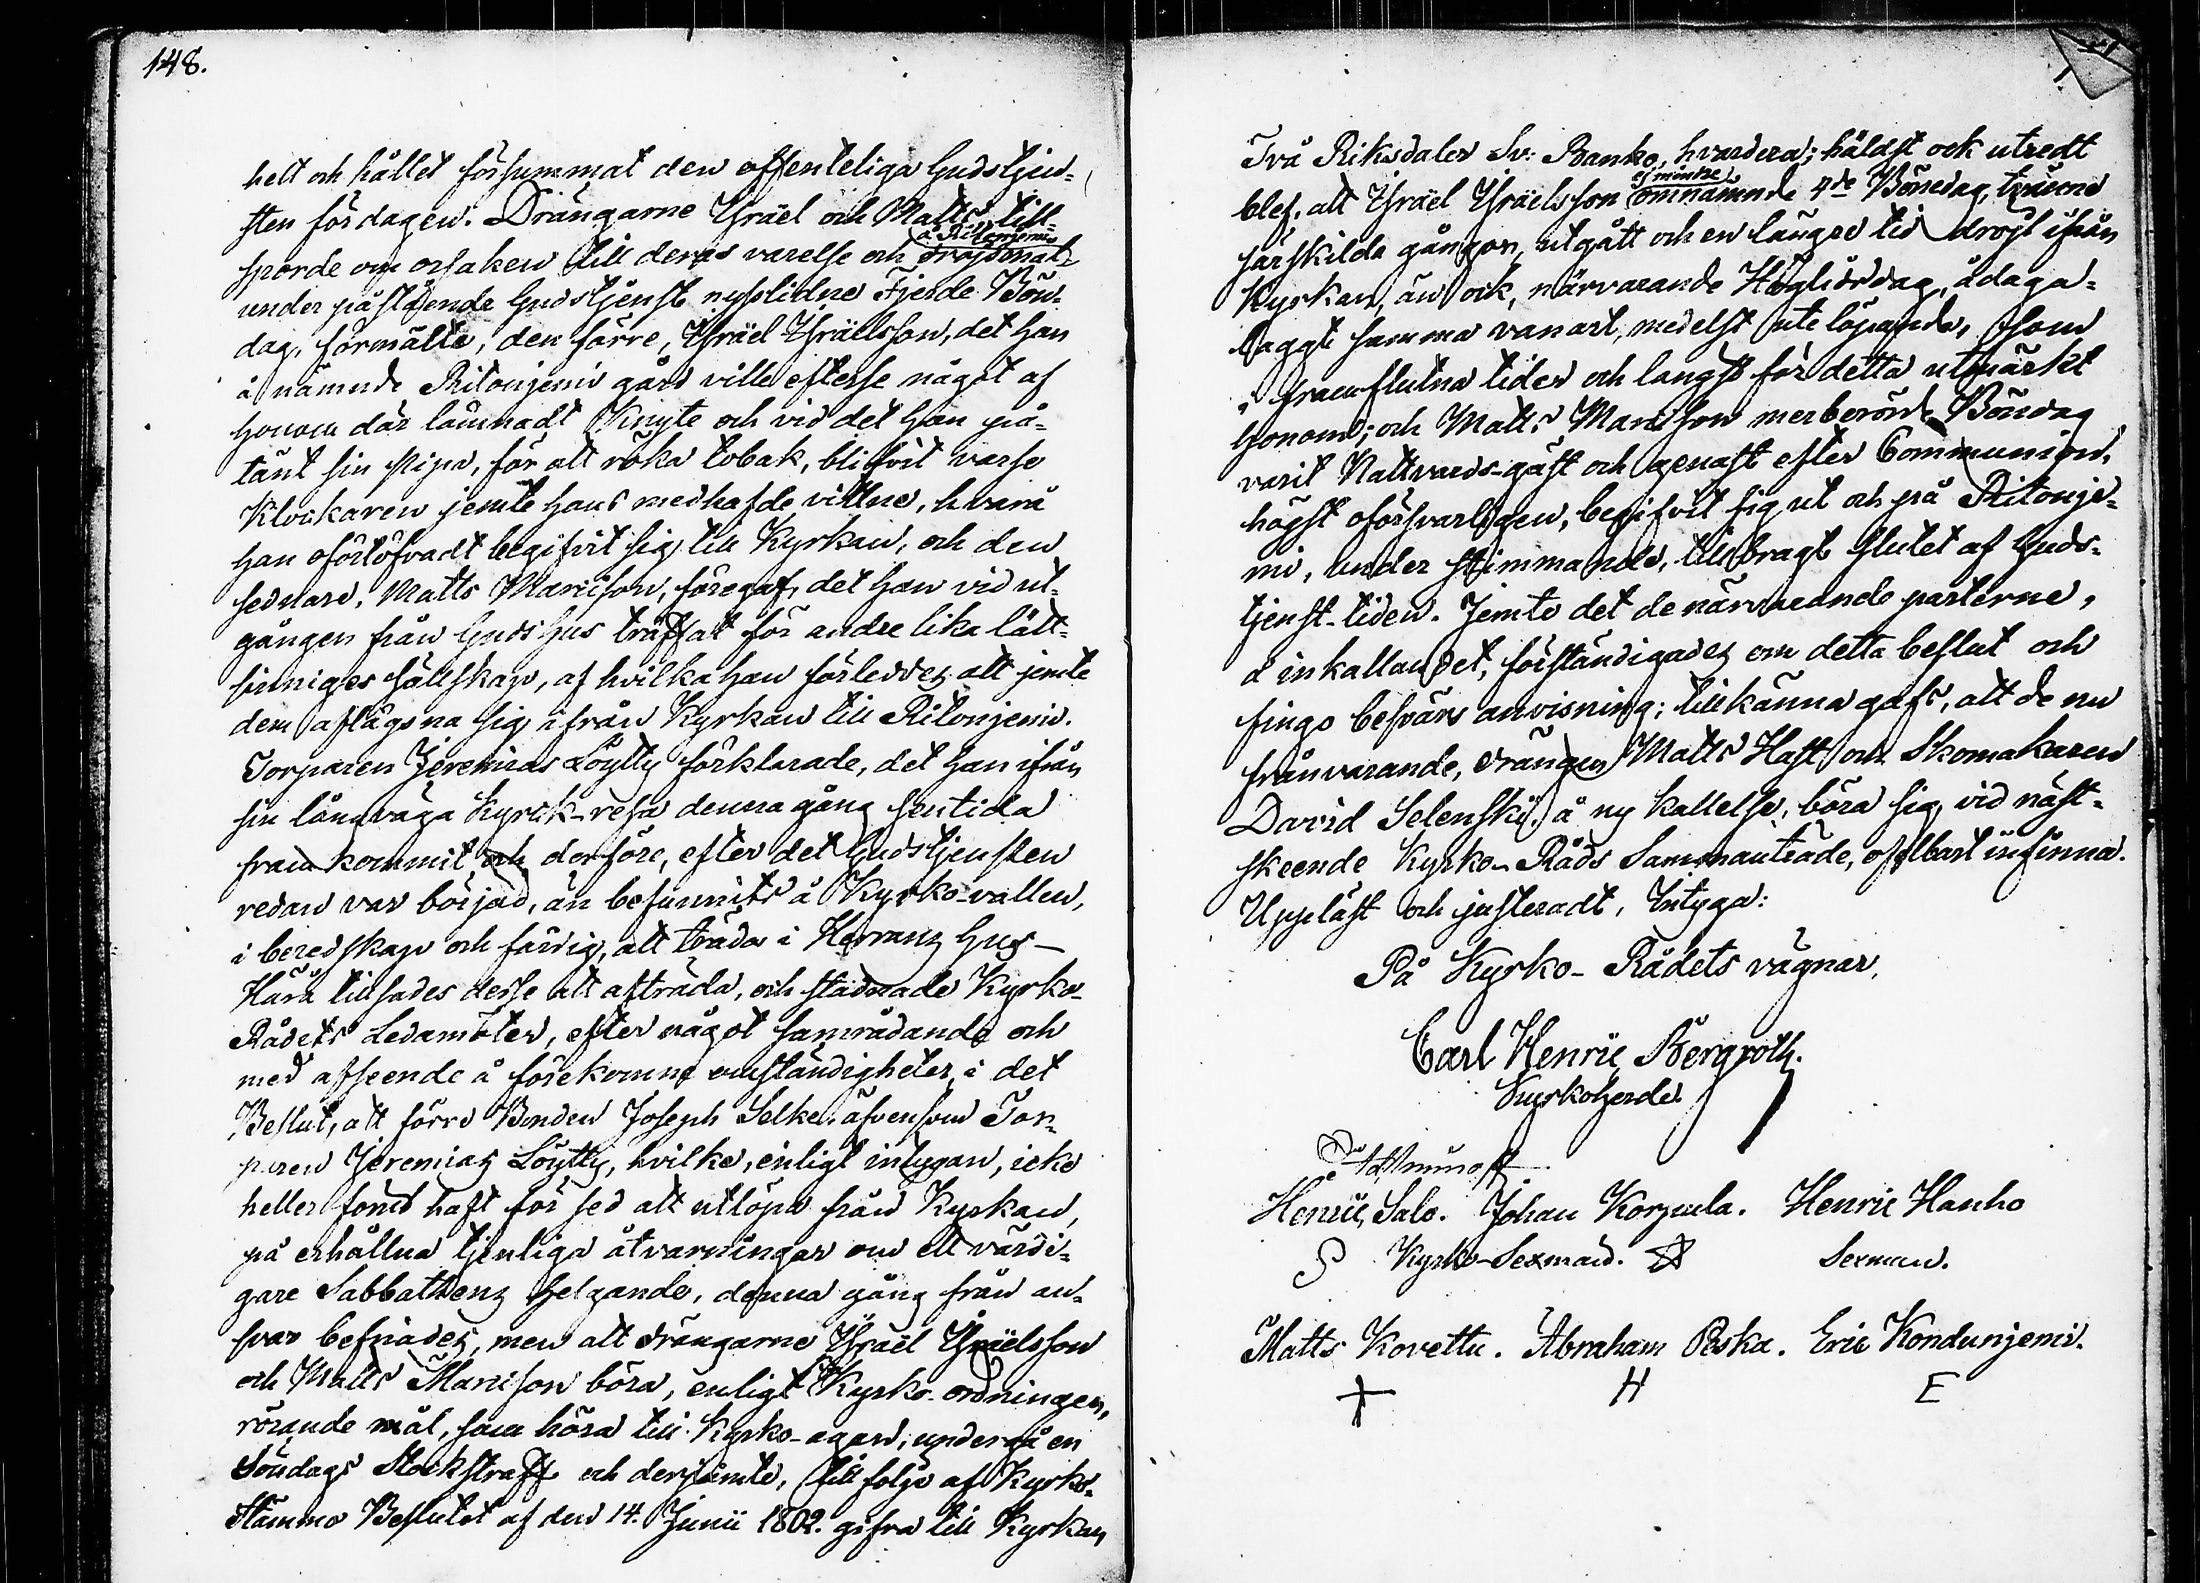 148.
helt och hållet försummat den offenteliga Gudstjen-
sten för dagen. Drängarne Israël och Matts, till-
sporde om orsaken till deras varelse och å Ritonjemi dröjsmål
under påstående Gudstjenst nystlidne Fjerde Bön-
dag, förmälte, den förre, Israël Israëlsson, det han
å nämnde Ritonjemi gård ville efterse något af
honom där lämnadt Knyte och vid det han på-
tänt sin pipa, för att röka tobak, blifvit varse
Klockaren jemte hans medhafde vittne, hvarå
han ofördröfvadt begifvit sig till Kyrkan, och den
sednare, Matts Marcison, föregaf, det han vid ut-
gången från Guds hus träffat för andre lika lätt-
sinniges sällskap, af hvilka han förleddes att jemte
dem aflägsna sig ifrån Kyrkan till Ritonjemi.
Torparen Jeremias Löytty förklarade, det han ifrån
sin långväga Kyrck-resa denna gång sentida
framkommit och derföre, efter det Gudstjensten
redan var börjad, än befunnits å Kyrko-vallen,
i beredskap och färdig, att träda i Herrans Hus –
Härå tillsades desse att afträda, och stadnade Kyrko-
Rådets Ledamöter, efter något samrådande och
med afseende å förekomne omständigheter i det
Beslut, att förre Bonden Joseph Selke, äfvensom Tor-
paren Jeremias Löytty, hvilke, enligt intygan, icke
heller förut haft för sed att utlöpa från Kyrkan,
på erhållna tjenliga åtvarningar om ett värdi-
gare Sabbathens helgande, denna gång från an-
svar befriades, men att drängarne Israël Israëlsson
och Matts Marcison böra, enligt Kyrko-ordningen,
rörande mål, som höra till Kyrko-agan, undergå en
Söndags Stockstraff och derjämte, till följe af Kyrko-
Stämmo Beslutet af den 14. Junii 1802. gifva till Kyrkan
Två Riksdaler Sv: Banko, hvardera; hälst ock utredt
blef, att Israël Israëlsson ej mindre omnämnde 4de Bönedag, trenne
särskilda gångor, utgått och en längre tid dröjt ifrån
Kyrkan, än ock, närvarande Höglördag, ådaga-
laggt samma vanart, medelst ute löpande, som
i framflutna tider och langst för detta utmärkt
honom; och Matts Marcison merberörde Böndag
varit Nattvards-gäst och genast efter Communion,
högst oförsvarligen, begifvit sig ut och på Ritonje-
mi, under stimmande, tillbragt Slutet af Guds-
tjenst-tiden. Jemte det de närvarande parterne,
å inkallandet, förständigades om detta beslut och
fingo besvärs anvisning; tillkänna gafs, att de nu
frånvarande, drängen Matts Haft och Skomakaren
David Selenski, å ny kallelse, böra sig vid näst-
skeende Kyrko-Råds Sammanträde, ofelbart infinna.
Uppläst och justeradt, Intyga:
På Kyrko-Rådets vägnar,
Carl Henric Bergroth.
Kyrkoherde.
Henric Salo. Johan Korpula. Henric Hanho
S Kyrko-Sexmän. Sexman.
Matts Kovettu. Abraham Poska. Eric Kondunjemi.
H E